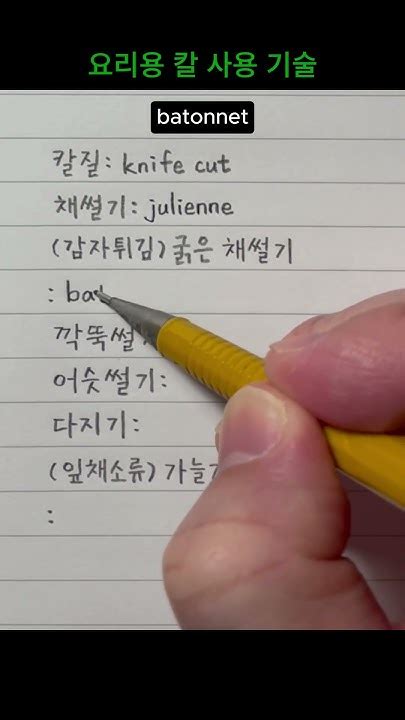 요리용 칼 사용 기술
batonnet
칼질: knife cut
채썰기: julienne
(감자튀김) 굵은 채썰기
: ba
깍뚝썰
어슷썰기:
다지기:
(잎채소류) 가늘
: